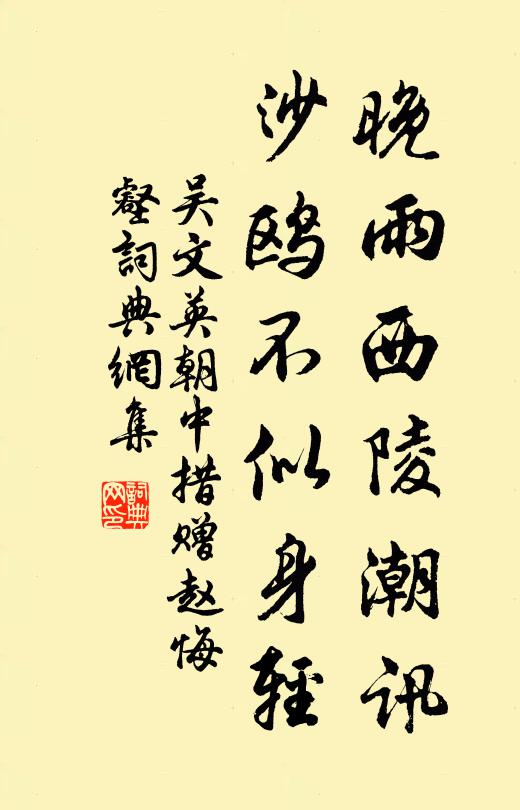 晚雨西陵潮讯
沙鸥不似身輕
吴文英朝中措赠赵悔
壑詞典網集
詞典网印